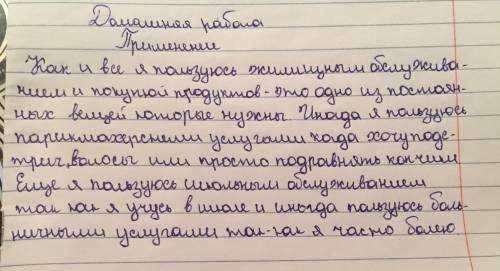 Домашняя работа
Применение
Как и все я пользуюсь жилищным обслужива-
нием и покупкой продуктов - это одно из постоян-
ных вещей которые нужны. Иногда я пользуюсь
парикмахерскими услугами када хочу подс-
тричь волосы или просто подравнять кончики
Еще я пользуюсь школьным обслуживанием
так как я учусь в школе и иногда пользуюсь боль-
ничными услугами так-как я часто болею